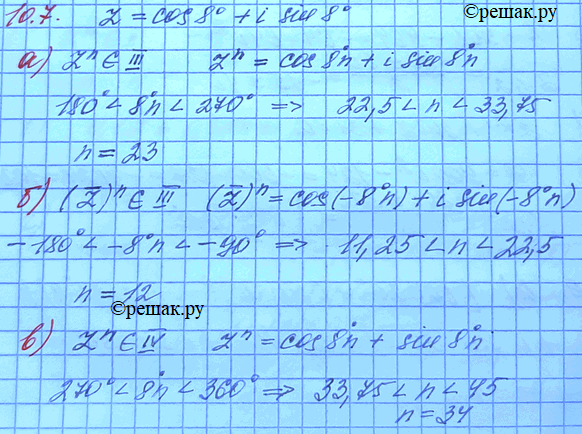 ©решак.ру
10.7. z = cos 8° + i sin 8°
а) zⁿ ∈ III zⁿ = cos 8°n + i sin 8°n
180° < 8°n < 270° => 22,5 < n < 33,75
n = 23
б) (z̅)ⁿ ∈ III (z̅)ⁿ = cos(-8°n) + i sin(-8°n)
-180° < -8°n < -90° => 11,25 < n < 22,5
n = 12
©решак.ру
в) zⁿ ∈ IV zⁿ = cos 8°n + sin 8°n
270° < 8°n < 360° => 33,75 < n < 45
n = 34